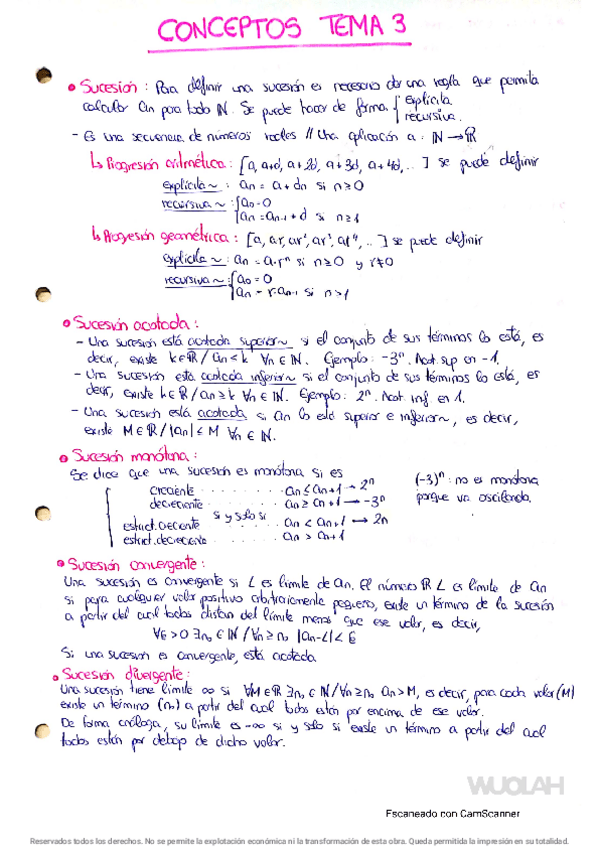 CONCEPTOS TEMA 3
• Sucesión : Para definir una sucesión es necesario dar una regla que permita
calcular an para todo ℕ. Se puede hacer de forma { explícita
recursiva.
- Es una secuencia de números reales // Una aplicación a : ℕ → ℝ
↳ Progresión aritmética : [a, a+d, a+2d, a+3d, a+4d, ...] se puede definir
explícita~ : an = a + dn si n≥0
recursiva~ : { an = 0
an = an-1 + d si n≥1
↳ Progresión geométrica : [a, ar, ar², ar³, ar⁴, ...] se puede definir
explícita~ : an = a·rⁿ si n≥0 y r≠0
recursiva~ : { a0 = 0
an = r·an-1 si n>1
• Sucesión acotada :
- Una sucesión está acotada superior~ si el conjunto de sus términos lo está, es
decir, existe k∈ℝ / an ≤ k ∀n∈ℕ. Ejemplo: -3ⁿ. Acot. sup en -1.
- Una sucesión está acotada inferior~ si el conjunto de sus términos lo está, es
decir, existe k∈ℝ / an ≥ k ∀n∈ℕ. Ejemplo: 2ⁿ. Acot inf en 1.
- Una sucesión está acotada si an lo está superior e inferior~, es decir,
existe M∈ℝ / |an| ≤ M ∀n∈ℕ.
• Sucesión monótona :
Se dice que una sucesión es monótona si es
creciente . . . . . . . . . an ≤ an+1 → 2ⁿ
(-3)ⁿ : no es monótona
decreciente . . . . . . . . an ≥ an+1 → -3ⁿ
porque va oscilando.
si y sólo si
estrict. creciente an < an+1 → 2n
estrict. decreciente an > an+1
• Sucesión convergente :
Una sucesión es convergente si L es límite de an. El número ℝ L es límite de an
si para cualquier valor positivo arbitrariamente pequeño, existe un término de la sucesión
a partir del cual todos distan del límite menos que ese valor, es decir,
∀ε > 0 ∃n₀ ∈ ℕ / ∀n ≥ n₀ |an-L| < ε
Si una sucesión es convergente, está acotada.
• Sucesión divergente :
Una sucesión tiene límite ∞ si ∀M∈ℝ ∃n₀ ∈ ℕ / ∀n≥n₀ an > M, es decir, para cada valor (M)
existe un término (n₀) a partir del cual todos están por encima de ese valor.
De forma análoga, su límite es -∞ si y sólo si existe un término a partir del cual
todos están por debajo de dicho valor.
WUOLAH
Escaneado con CamScanner
Reservados todos los derechos. No se permite la explotación económica ni la transformación de esta obra. Queda permitida la impresión en su totalidad.